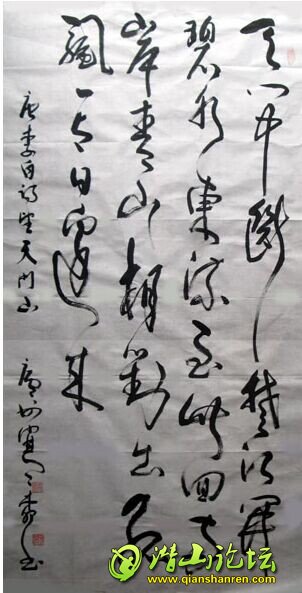 天门中断楚江開
碧水東流至此回两
岸青山相對出孤
帆一片日邊来
唐李白诗望天门山
书
潜山论坛
www.qianshanren.com